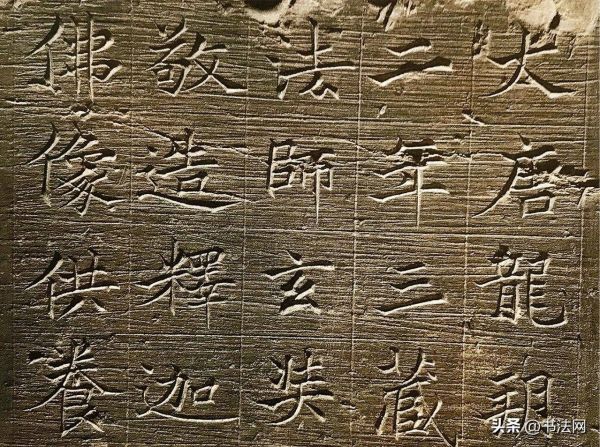 大唐龍朔
二年三藏
法師玄奘
敬造釋迦
佛像供養
头条 @书法网